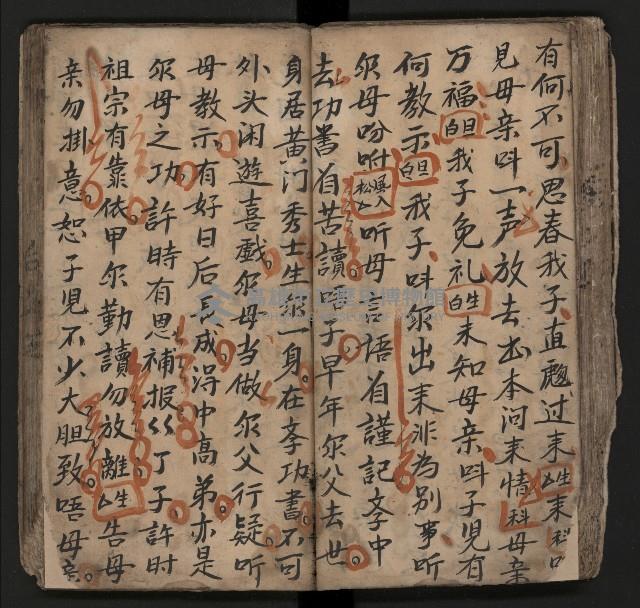 有何不可思春我子直趐过来生上来科口
見母亲呌一声放去出本河来情科母亲
万福旦白我子免礼生白未知母亲呌子児有
何教示旦白我子呌尔出来非为別事听
尔母吩咐滾入松厶听母言语自謹記斈中
去功書自苦讀子早年尔父去世
身居黄门秀士生尔一身在斈功書不可
外头闲遊喜戲尔母当做尔父行疑听
母教示有好日后長成淂中髙弟亦是
尔母之功許時有思補报丁子許时
祖宗有靠依甲尔勤讀勿放離生厶告母
亲勿掛意恕子児不少大胆致唔母亲
高雄市立歷史博物館
KAOHSIUNG MUSEUM OF HISTORY